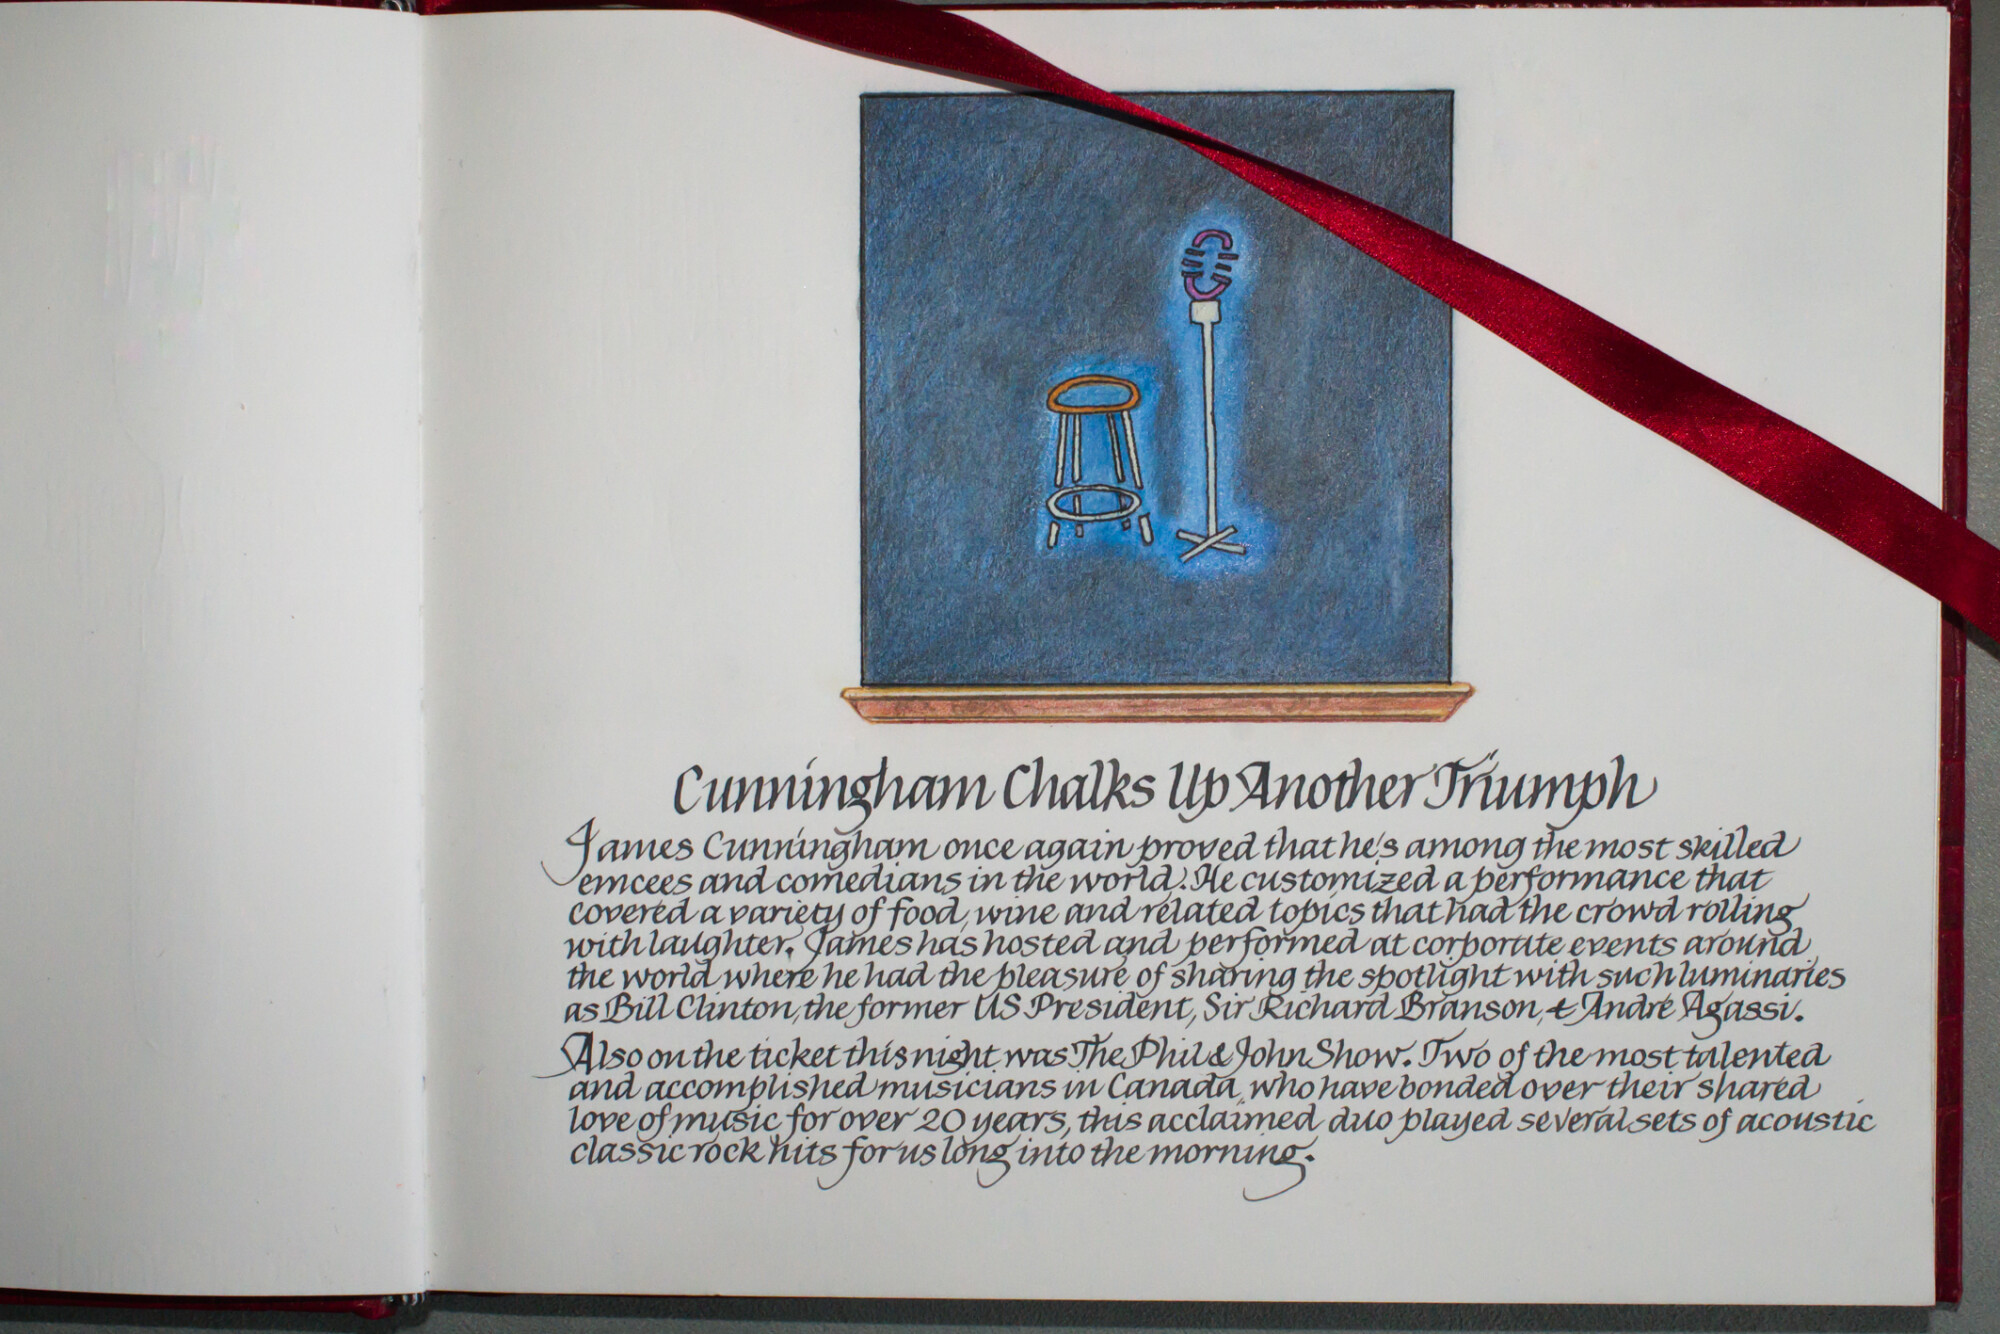 Cunningham Chalks Up Another Triumph
James Cunningham once again proved that he's among the most skilled
emcees and comedians in the world. He customized a performance that
covered a variety of food, wine and related topics that had the crowd rolling
with laughter. James has hosted and performed at corporate events around
the world where he had the pleasure of sharing the spotlight with such luminaries
as Bill Clinton, the former US President, Sir Richard Branson, & André Agassi.
Also on the ticket this night was The Phil & John Show. Two of the most talented
and accomplished musicians in Canada, who have bonded over their shared
love of music for over 20 years, this acclaimed duo played several sets of acoustic
classic rock hits for us long into the morning.